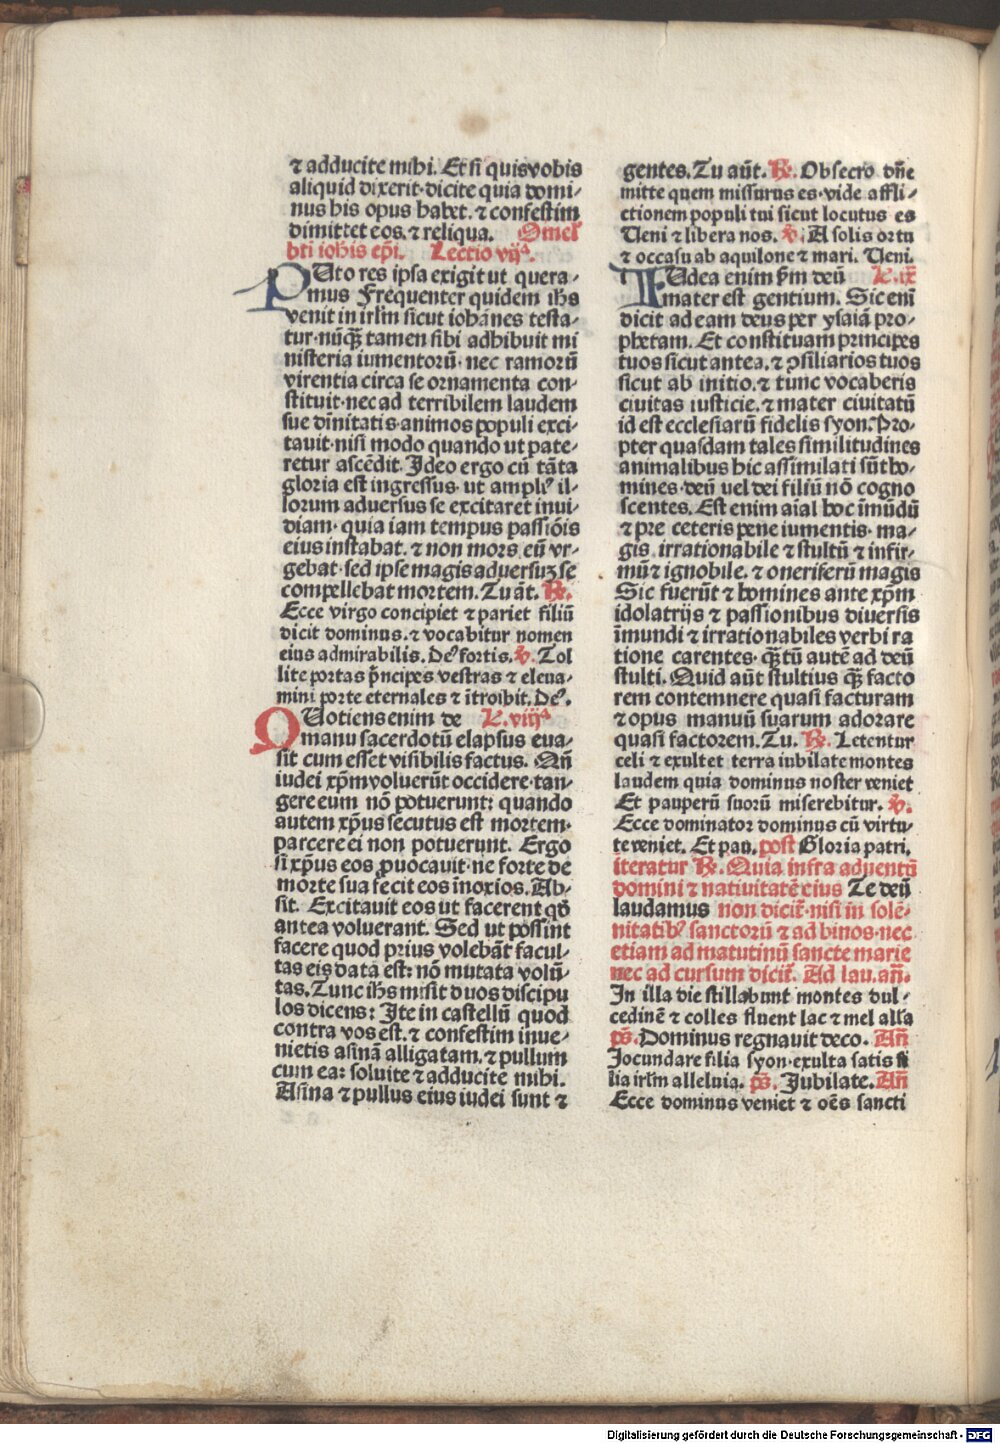 ⁊ adducite mihi. Et si quis vobis
aliquid dixerit·dicite quia domi-
nus his opus habet. ⁊ confestim
dimittet eos. ⁊ reliqua. Omel
bti iohis epi. Lectio vijª.
PUto res ipsa exigit ut quera-
mus Frequenter quidem ihs
venit in irlm sicut iohānes testa-
tur·nūqꝫ tamen sibi adhibuit mi
nisteria iumentorū· nec ramorū
virentia circa se ornamenta con-
stituit·nec ad terribilem laudem
sue dīnitatis·animos populi exci-
tauit·nisi modo quando ut pate-
retur ascēdit. Ideo ergo cū tāta
gloria est ingressus· ut ampliꝰ il-
lorum aduersus se excitaret inui-
diam· quia iam tempus passiōis
eius instabat. ⁊ non mors eū vr-
gebat·sed ipse magis aduersuꝫ se
compellebat mortem. Tu āt. ℟.
Ecce virgo concipiet ⁊ pariet filiū
dicit dominus.⁊ vocabitur nomen
eius admirabilis. Deꝰ fortis. ℣. Tol
lite portas p̄ncipes vestras ⁊ eleua-
mini porte eternales ⁊ ītroibit. Deꝰ.
QUotiens enim de L. viijª
manu sacerdotū elapsus eua-
sit cum esset visibilis factus. Qn̄
iudei xp̄m voluerūt occidere·tan-
gere eum nō potuerunt: quando
autem xp̄us secutus est mortem·
parcere ei non potuerunt. Ergo
si xp̄us eos ꝓuocauit·ne forte de
morte sua fecit eos īnoxios. Ab-
sit. Excitauit eos ut facerent qd̄
antea voluerant. Sed ut possint
facere quod prius volebāt facul-
tas eis data est: nō mutata volū-
tas. Tunc ihs misit duos discipu
los dicens: Ite in castellū quod
contra vos est. ⁊ confestim inue-
nietis asinā alligatam.⁊ pullum
cum ea: soluite ⁊ adducite mihi.
Asina ⁊ pullus eius iudei sunt ⁊
gentes. Tu aūt. ℟. Obsecro dn̄e
mitte quem missurus es·vide affli-
ctionem populi tui sicut locutus es
Ueni ⁊ libera nos. ℣. A solis ortu
⁊ occasu ab aquilone ⁊ mari. Ueni.
IUdea enim ꝑm deū L. ix
mater est gentium. Sic enī
dicit ad eam deus per ysaiā pro-
phetam. Et constituam principes
tuos sicut antea. ⁊ ꝯsiliarios tuos
sicut ab initio.⁊ tunc vocaberis
ciuitas iusticie. ⁊ mater ciuitatū
id est ecclesiarū fidelis syon. Pro-
pter quasdam tales similitudines
animalibus hic assimilati sūt ho-
mines·deū uel dei filiū nō cogno
scentes. Est enim aīal hoc īmūdū
⁊ pre ceteris pene iumentis· ma-
gis irrationabile ⁊ stultū ⁊ infir-
mū ⁊ ignobile. ⁊ oneriferū magis
Sic fuerūt ⁊ homines ante xp̄m
idolatrijs ⁊ passionibus diuersis
īmundi ⁊ irrationabiles verbi ra
tione carentes· qꝫtū autē ad deū
stulti. Quid aūt stultius qꝫ facto
rem contemnere quasi facturam
⁊ opus manuū suarum adorare
quasi factorem. Tu. ℟. Letentur
celi ⁊ exultet terra iubilate montes
laudem quia dominus noster veniet
Et pauperū suorū miserebitur. ℣.
Ecce dominator dominus cū virtu-
te veniet. Et pau. post Gloria patri.
iteratur ℟. Quia infra aduentū
domini ⁊ natiuitatē eius Te deū
laudamus non dicit̄·nisi in solē-
nitatibꝰ sanctorū ⁊ ad binos·nec
etiam ad matutinū sancte marie
nec ad cursum dicit̄. Ad lau. an̄.
In illa die stillabunt montes dul-
cedinē ⁊ colles fluent lac ⁊ mel alla
ps̄. Dominus regnauit deco. An̄
Jocundare filia syon·exulta satis fi
lia irlm alleluia. ps̄. Jubilate. An̄
Ecce dominus veniet ⁊ oēs sancti
Digitalisierung gefördert durch die Deutsche Forschungsgemeinschaft - DFG